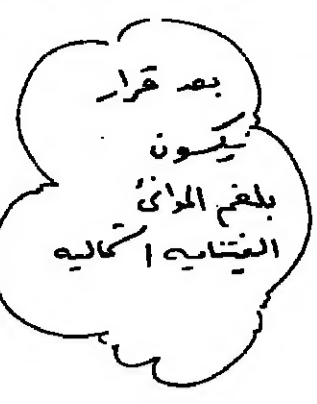 بعد قرار
نيكسون
بلغم الموانئ
الفيتناميه الشماليه